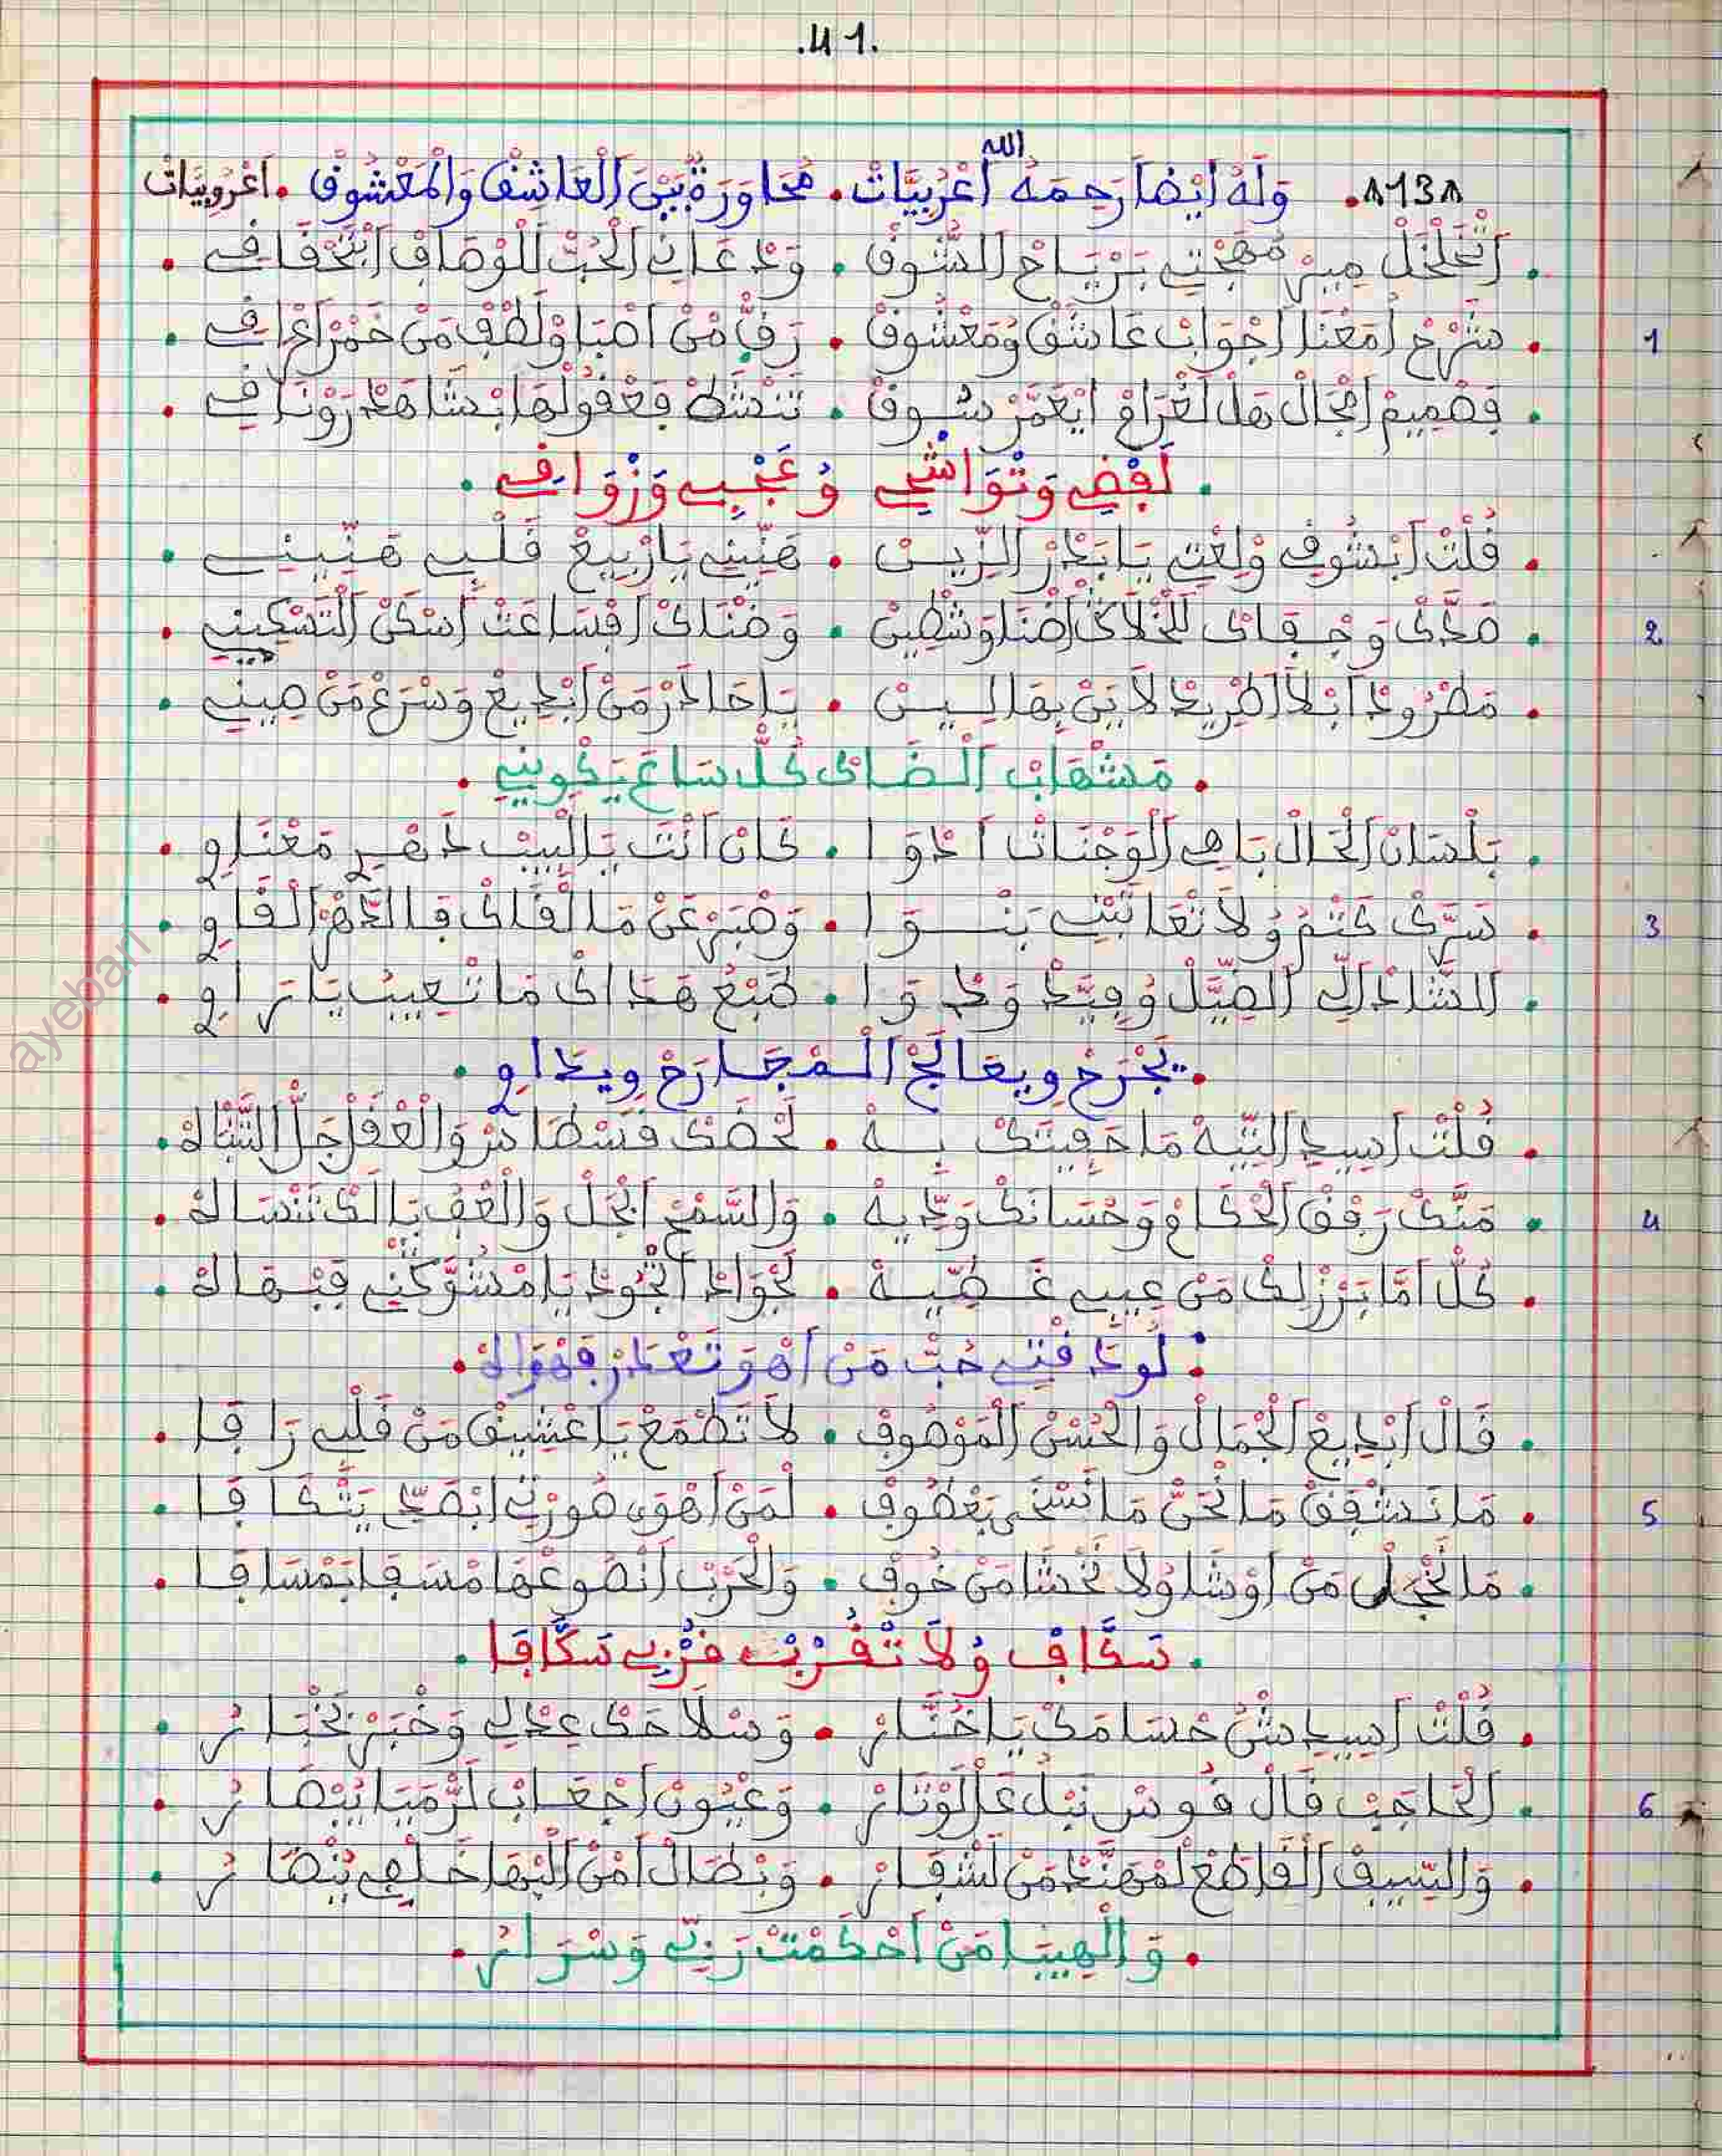 .41.
٨138. وَلَهُ أَيْضاً رَحِمَهُ الله أَعْرُبِيَّاتْ. مُحَاوَرَةٌ بَيْنَ الْعَاشِقْ وَالْمَعْشُوقْ. اَعْرُوبِيَّاتْ
. اَتْخَلْخَلْ مِيرْ مُهَجْتِي بَرْيَاحْ الشُّوقْ . وَدْعَانِي الْحُبّْ لَلْوْصَافْ ابْتَحْقَاقِي .
. شَرْحْ امَعْنَا اجْوَابْ عَاشَقْ وُمَعْشُوقْ . رَقّْ مْنْ اصْبَا وْلَطْفْ مَنْ خَمْرْ اعْرَاقِي . 1
. فَصْمِيمْ امْجَالْ هَلْ لَغْرَامْ ايْعَمَّرْ سُوقْ . تَنْشَطْ فَعْقُولْهَا ابْشَاهَدْ رَوْنَاقِي .
. لَفْضِي وَتْوَاشِي وُعَجْبِي وَزْوَاقِي .
. قُلْتْ ابْشُوقِي وْلِعْتِي يَا بَدْرْ الزِّينْ . هَنِّينِي يَا رْبِيعْ قَلْبِي هَنِّينِي .
. صَدَّكْ وَجْفَاكْ لَلْخْلَاكْ اضْنَا وَشْطِينْ . وَضْنَاكْ افْسَاعَتْ اسْكَنْ الْتَسْكِينِي . 2
. مَطْرُودْ ابْلَا اطْرِيدْ لَايَنْ بِهَا لِينْ . يَا حَادَرْ مَنْ ابْدِيعْ وَسْرَعْ مَنْ حِينِي .
. مَشْهَابْ الْضَاكْ كُلّْ سَاعَ يَكْوِينِي .
. بَلْسَانْ الْحَالْ بَاهِي الْوَجْنَاتْ ادْوَا . كَانْ انْتَ بَالْبِيبْ دَهْرِي مَعْنَاوِي .
. سَرَّكْ كَتْمُ وُلَا تْعَاتَبْنِي بَنْوَا . وَصْبَرْ عَنْ مَا لْقَاكْ فَالدَّهْرْ الْقَاوِي . 3
. الشَّادْلِي الْضِيَّلْ وُفِيَّدْ وَدْوَا . طَبْعْ هَدَاكْ مَا تْعِيبُ يَا تَرَاوِي .
. يَجْرَحْ وِيعَالَجْ الْمْجَارَحْ وِيدَاوِي .
. قُلْتْ اسِيدِ التِّيهْ مَا حَفِيتَكْ بِهْ . لَحْضَكْ فَسْطَاسْ وَالْعْقَلْ جَلّْ التَّبَاكْ .
. مَنَّكْ رَفْقْ الْحْكَامْ وَحْسَانَكْ وَدِّيهْ . وَالسَّمْحْ الْجَلْ وَالْعْفُ بَالَكْ تَنْسَاكْ . 4
. كُلّْ امَّا بَرْزْ لَكْ مَنْ عِيبِي غَطِّيهْ . لَجْوَادْ اتْجُودْ يَا مْشَوَّكْنِي فَبْهَاكْ .
. لُودَقْتِي حُبّْ مَنْ اهْوَ تَعْدَرْ فَهْوَاكْ .
. قَالْ ابْدِيعْ الْجْمَالْ وَالْحُسْنْ الْمَوْصُوفْ . لَا تَطْمَعْ يَا عْشِيقْ مَنْ قَلْبِي رَافَا .
. مَا نَشْفَقْ مَا نْحَنّْ مَا نَسْخَى بَعْطُوفْ . لْمَنْ اهْوَى صُورْتِي ابْصَدِّي يَتْكَافَا . 5
. مَا نَخْجَلْ مَنْ اوْشَا وُلَا نَخْشَا مَنْ خُوفْ . وَالْحَرْبْ انْصُوعْهَا مْسَفَا بَمْسَافَا .
. سَكَّافْ وُلَا تْقُرْبْ قُرْبِي سَكَّافَا .
. قُلْتْ اسِيدِ شَنْ حْسَامَكْ يَا خْتَارْ . وَسْلَاحَكْ عِدْلِي وَخْبَرْ تَخْتَارُ .
. الْحَاجَبْ قَالْ قُوسْ نَبْلُ عَالْوْتَارْ . وَعْيُونْ اجْعَابْ لَرْمَيَا يْبْصَارُ . 6
. وَالسِّيفْ الْقَاطَعْ لَمْهَنَّدْ مَنْ لَشْفَارْ . وَبْطَالْ امْنْ الْبْهَا خَلْفِي يُنْصَارُ .
. وَالْهِيبَا مَنْ احْكَمْتْ رَبِّي وَسْرَارُ .
ayebari